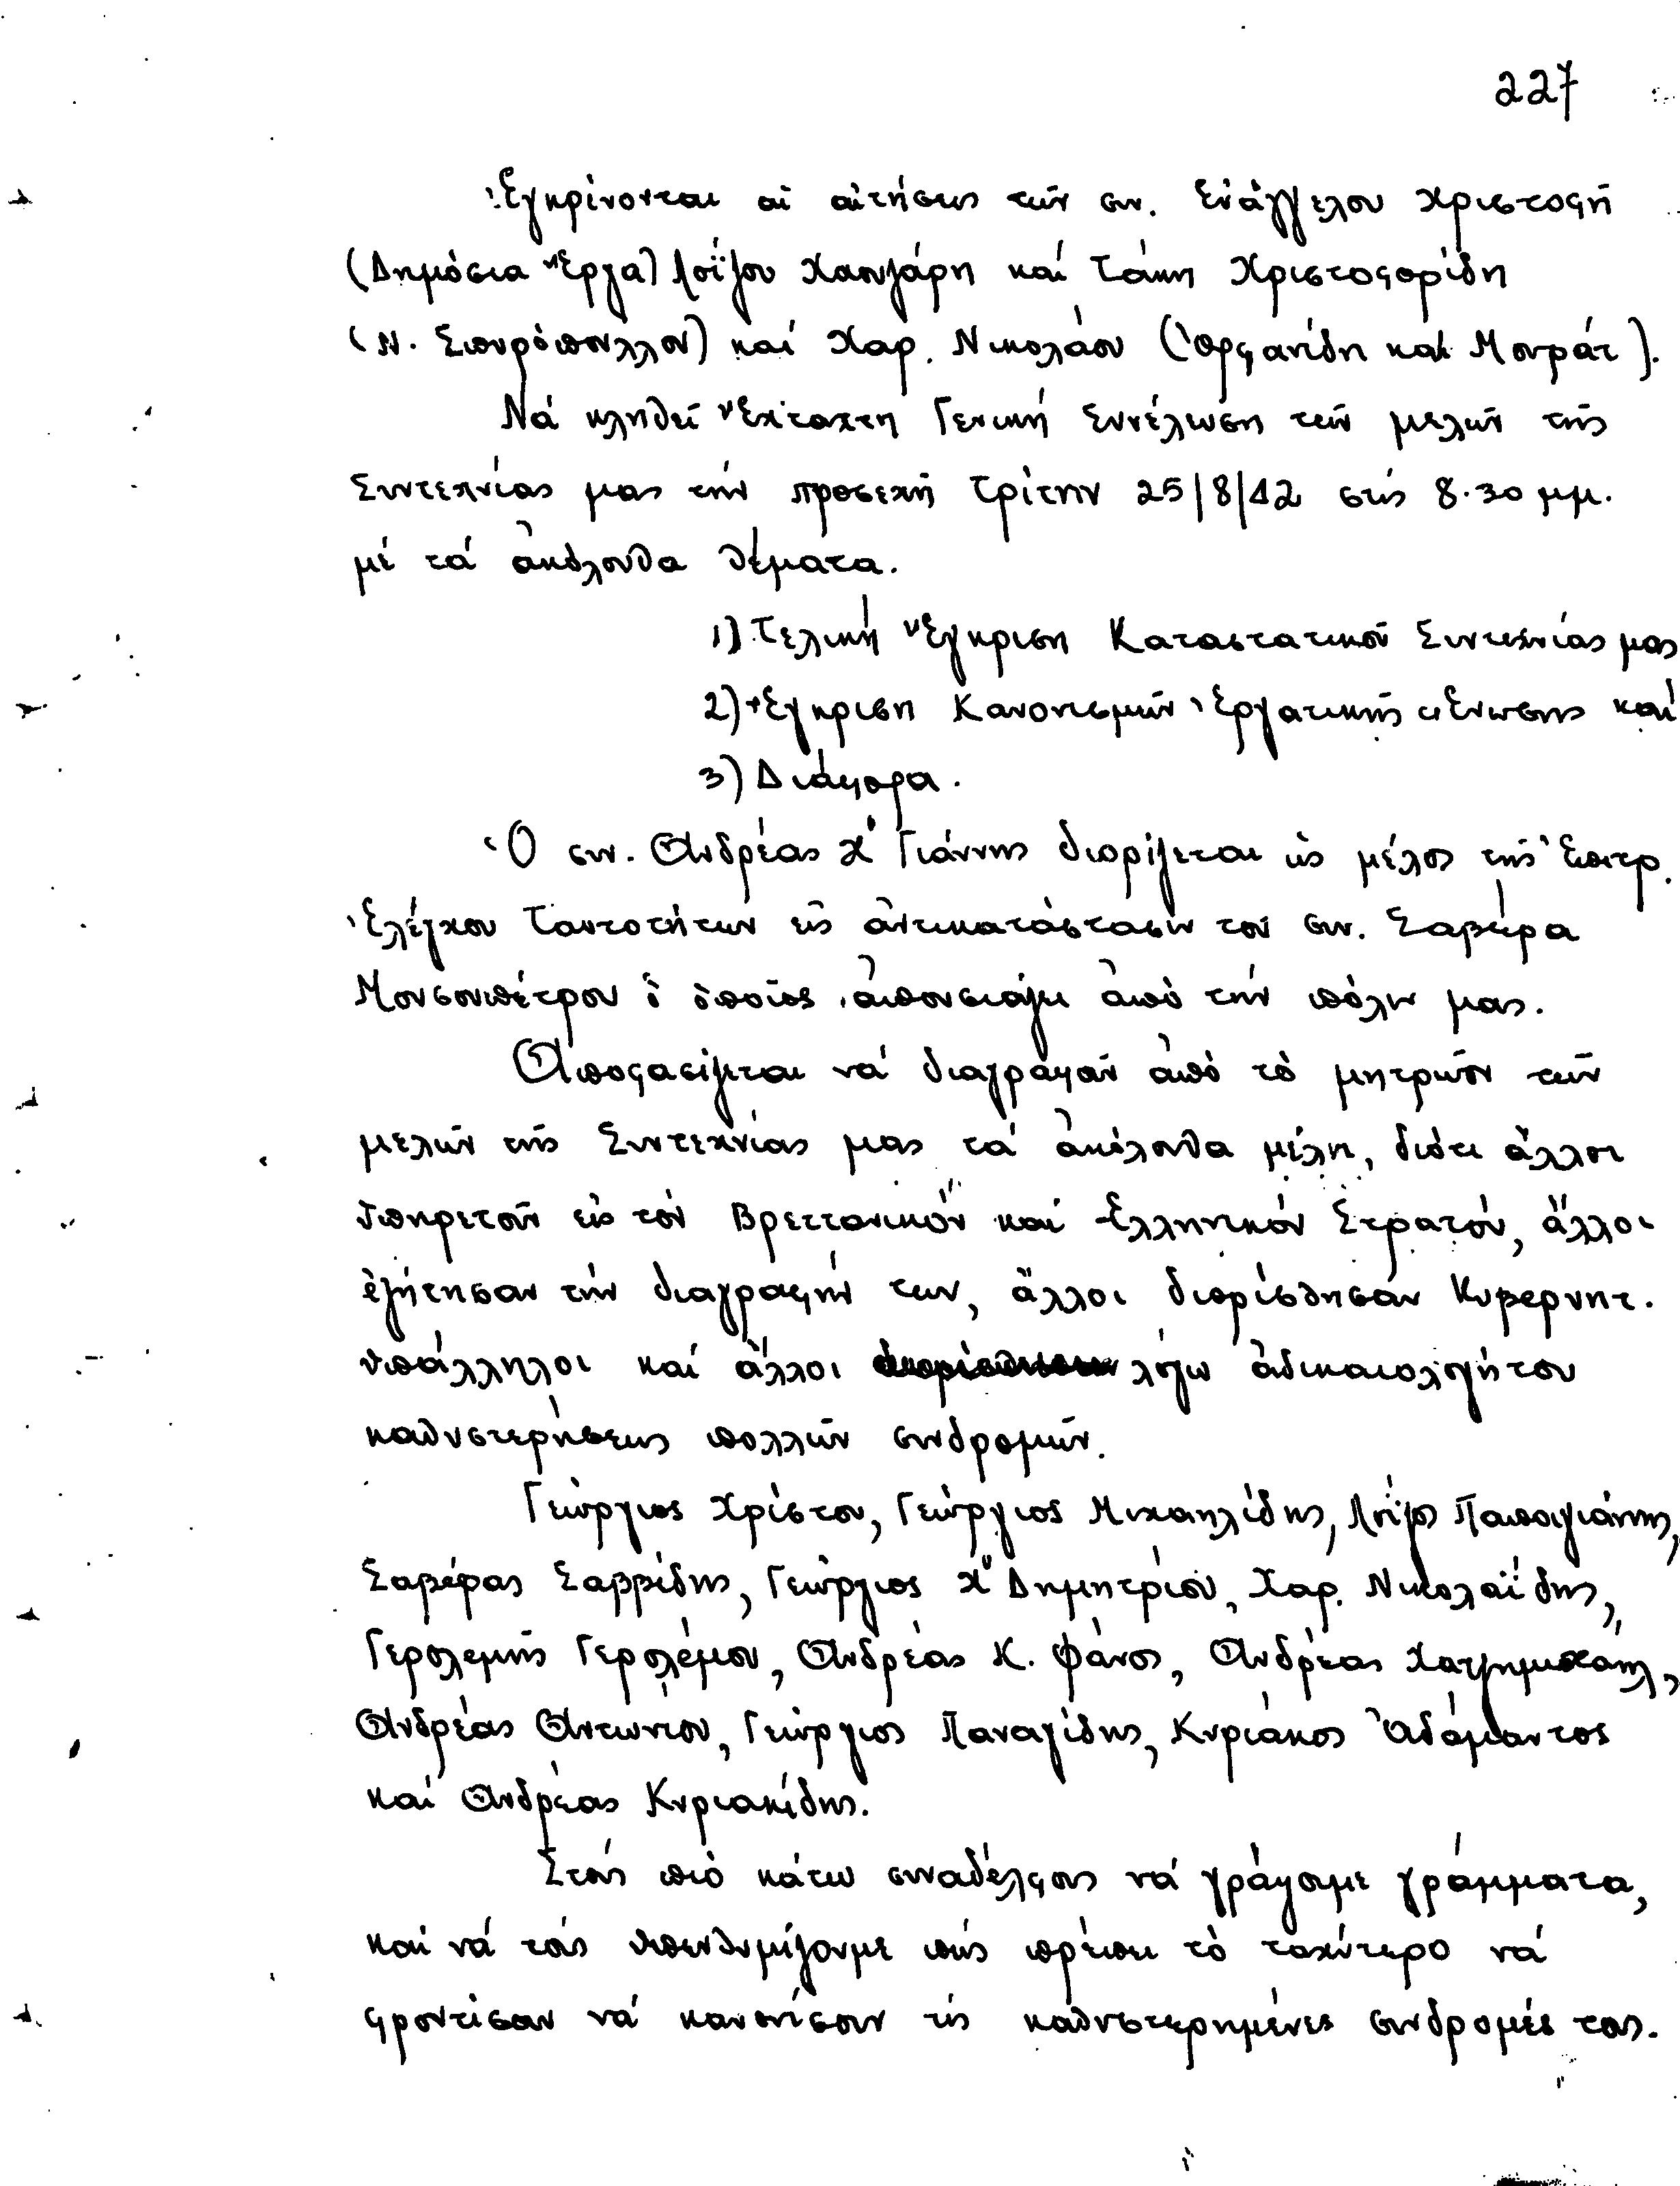 227
Ἐγκρίνονται αἱ αἰτήσεις τῶν συν. Εὐάγγελου Χριστοφῆ
(Δημόσια Ἔργα) Λοΐζου Χαουζάρη καί Τάκη Χριστοφορίδη
(Ν. Σπυρόπουλλου) καί Χαρ. Νικολάου (Ὀρφανίδη καί Μουράτ).
Νά κληθεῖ Ἔκτακτη Γενική Συνέλευση τῶν μελῶν τῆς
Συντεχνίας μας τήν προσεχῆ Τρίτην 25/8/42 στίς 8.30 μμ.
μέ τά ἀκόλουθα θέματα.
1) Τελική Ἔγκριση Καταστατικοῦ Συντεχνίας μας
2) Ἔγκριση Κανονισμῶν Ἐργατικῆς Ἑνώσης καί
3) Διάφορα.
Ὁ συν. Ἀνδρέας Χ" Γιάννης διορίζεται ὡς μέλος τῆς Ἐπιτρ.
Ἐλέγχου Ταυτοτήτων εἰς ἀντικατάστασιν τοῦ συν. Σαββέρα
Μουσουπέτρου ὁ ὁποῖος ἀπουσιάζει ἀπό τήν πόλιν μας.
Ἀποφασίζεται νά διαγραφοῦν ἀπό τό μητρῶον τῶν
μελῶν τῆς Συντεχνίας μας τά ἀκόλουθα μέλη, διότι ἄλλοι
ὑπηρετοῦν εἰς τόν Βρεττανικόν καί Ἑλληνικόν Στρατόν, ἄλλοι
ἐζήτησαν τήν διαγραφήν των, ἄλλοι διορίσθησαν Κυβερνητ.
ὑπάλληλοι καί ἄλλοι λόγω ἀδικαιολογήτου
καθυστερήσεως πολλῶν συνδρομῶν.
Γεώργιος Χρίστου, Γεώργιος Μιχαηλίδης, Λοΐζος Παπαγιάννης,
Σαβέρας Σαββίδης, Γεώργιος Χ" Δημητρίου, Χαρ. Νικολαΐδης,
Γερολεμῆς Γερολέμου, Ἀνδρέας Κ. Φάνος, Ἀνδρέας Χατζημιχαήλ,
Ἀνδρέας Ἀντωνίου, Γεώργιος Παναγίδης, Κυριάκος Ἀδάμαντος
καί Ἀνδρέας Κυριακίδης.
Στούς πιό κάτω συναδέλφους νά γράψουμε γράμματα,
καί νά τούς ὑπενθυμίζουμε πώς πρέπει τό ταχύτερο νά
φροντίσουν νά κανονίσουν τίς καθυστερημένες συνδρομές τους.